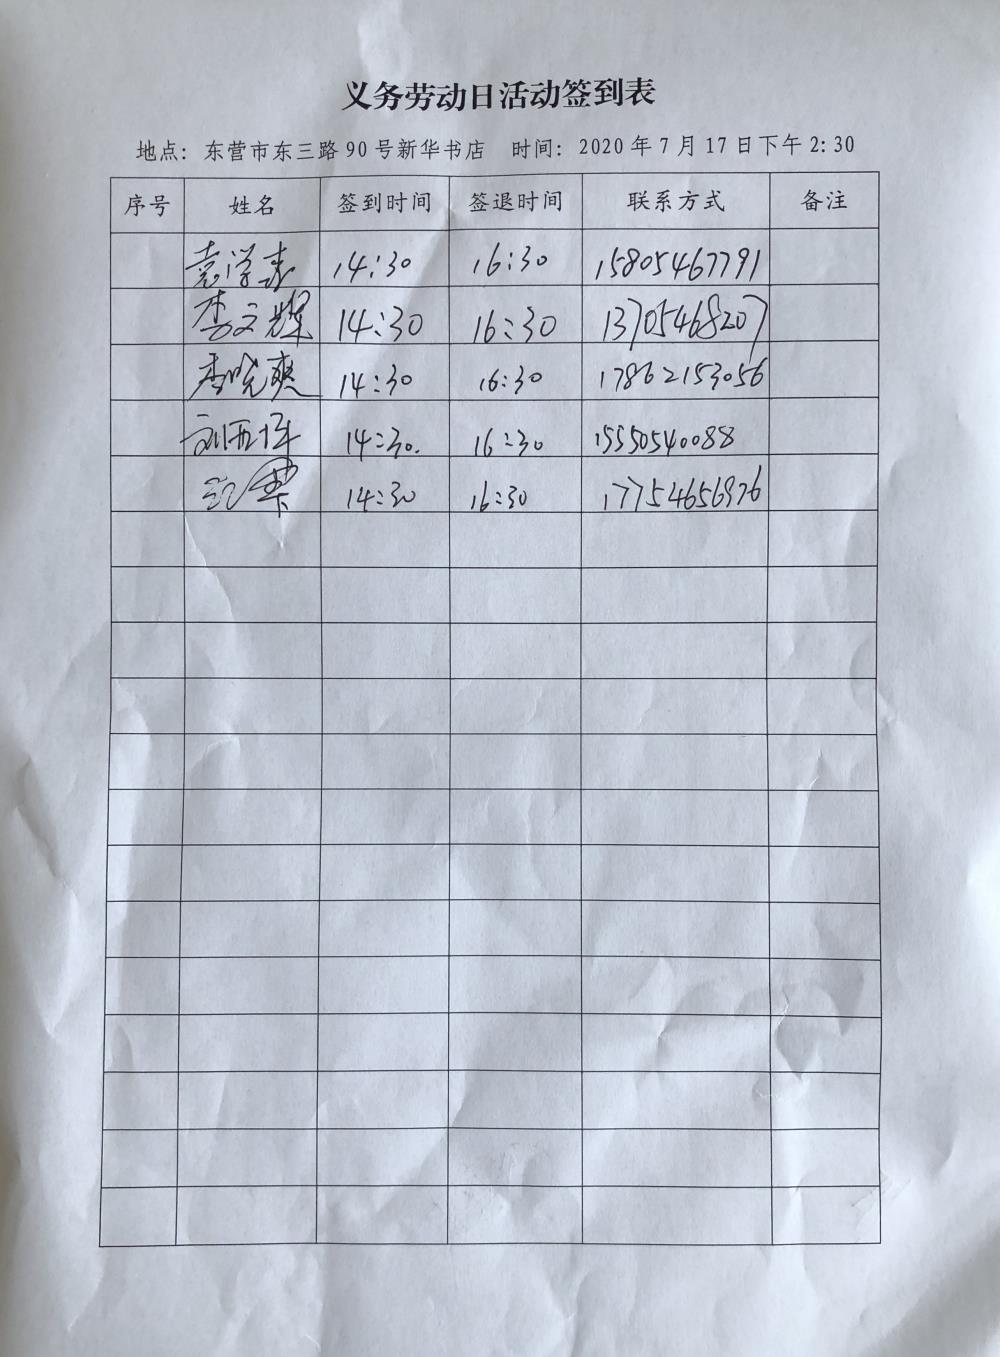 义务劳动日活动签到表
地点：东营市东三路90号新华书店 时间：2020年7月17日下午2:30
序号 姓名 签到时间 签退时间 联系方式 备注
袁学 14:30 16:30 15805467791
李文辉 14:30 16:30 13705468207
李晓爽 14:30 16:30 17862153056
刘西 14:30. 16:30 15550540088
14:30 16:30 17754656976